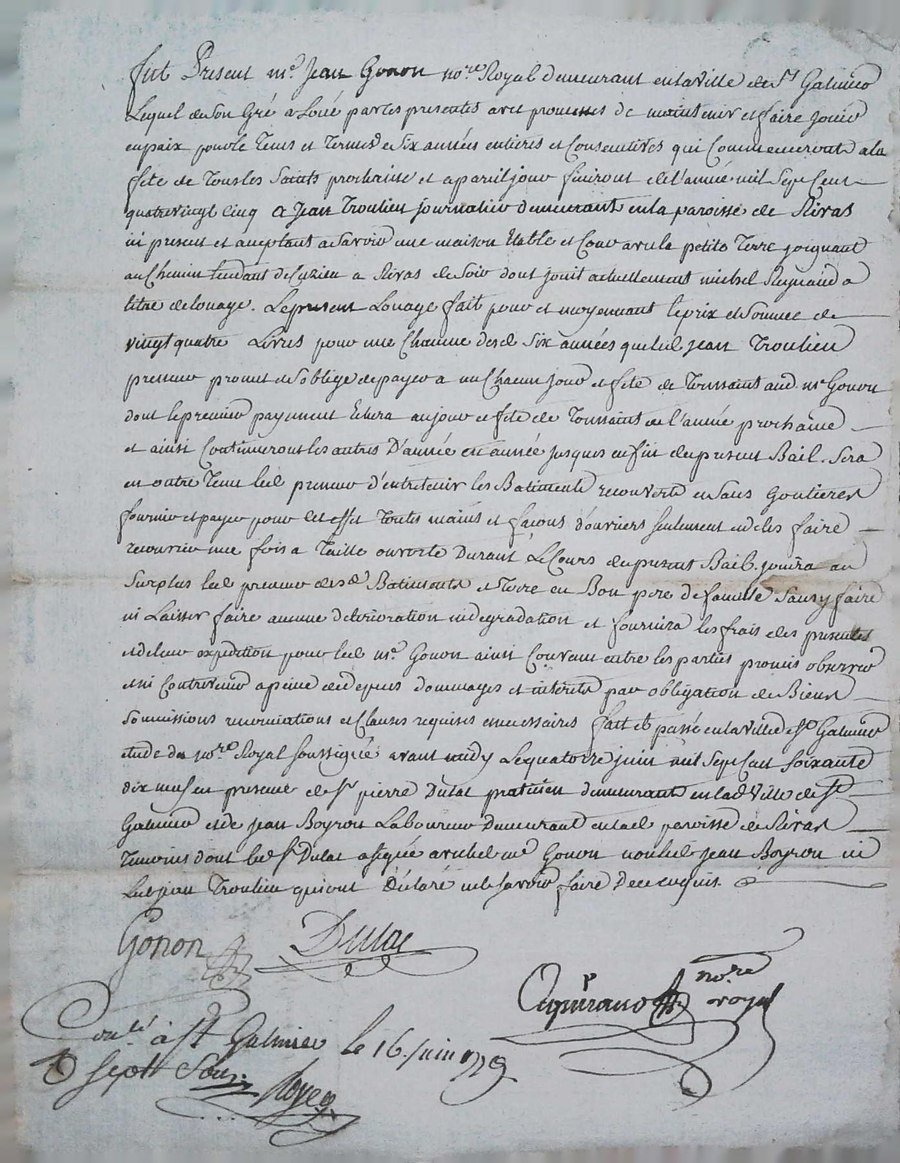 fut Present me. Jean Gonon nore Royal demeurant en la ville de St Galmier
Lequel de son Gré a Loué par ces presentes avec promesses de maintenir et faire jouir
en paix pour le tems et terme de six années entieres et consecutives qui commenceront a la
fete de Tous les Saints prochaine et a pareil jour finiront de l'année mil sept cent
quatre vingt cinq a Jean Troulieu journalier demeurant en la paroisse de Rivas
ici present et acceptant a savoir une maison Etable et Cour avec la petite Terre joignant
au Chemin tendant de Cuzieu a Rivas de soir dont jouit actuellement michel Reynaud a
titre de louage. Le present Louage fait pour et moyennant le prix et somme de
vingt quatre Livres pour une chacune desd. six années que led. Jean Troulieu
preneur promet et s'oblige de payer a un chacun jour et fete de Toussaint aud. me Gonon
dont le premier payement Echera au jour et fete de Toussaint de l'année prochaine
et ainsi continueront les autres D'année en année jusques en fin du present Bail. Sera
en outre Tenu led. preneur d'entretenir les Batiments recouverts en sans Goutieres
fournir et payer pour cet effet Toutes mains et façons d'ouvriers seulement et de les faire
recouvrir une fois a Taille ouverte Durant Le Cours du present Bail. jouira au
surplus led. preneur desd. Batiments et Terre en Bon pere de famille sans y faire
ni Laisser faire aucune deterioration ni degradation et fournira les frais des presentes
et de leur expedition pour led. me. Gonon ainsi convenu entre les parties promis observer
et ni contrevenir a peine de depens dommages et interets par obligation de Biens
soumissions renonciations et clauses requises et necessaires fait et passé en la ville de St Galmier
etude du nore Royal soussigné avant midy Le quatorze juin mil sept cent soixante
dix neuf en presence de Sr pierre Dulac praticien demeurant en lad. Ville de St
Galmier et de Jean Boyron Laboureur demeurant en lad. paroisse de Rivas
Temoins dont led. Sr Dulac a signé avec led. me Gonon non led. Jean Boyron ni
led. Jean Troulieu qui ont Déclaré ne le savoir faire De ce enquis.
Gonon Dulac
nore
royal
Conlé à St Galmier le 16. juin 1779
R sept sous Royer